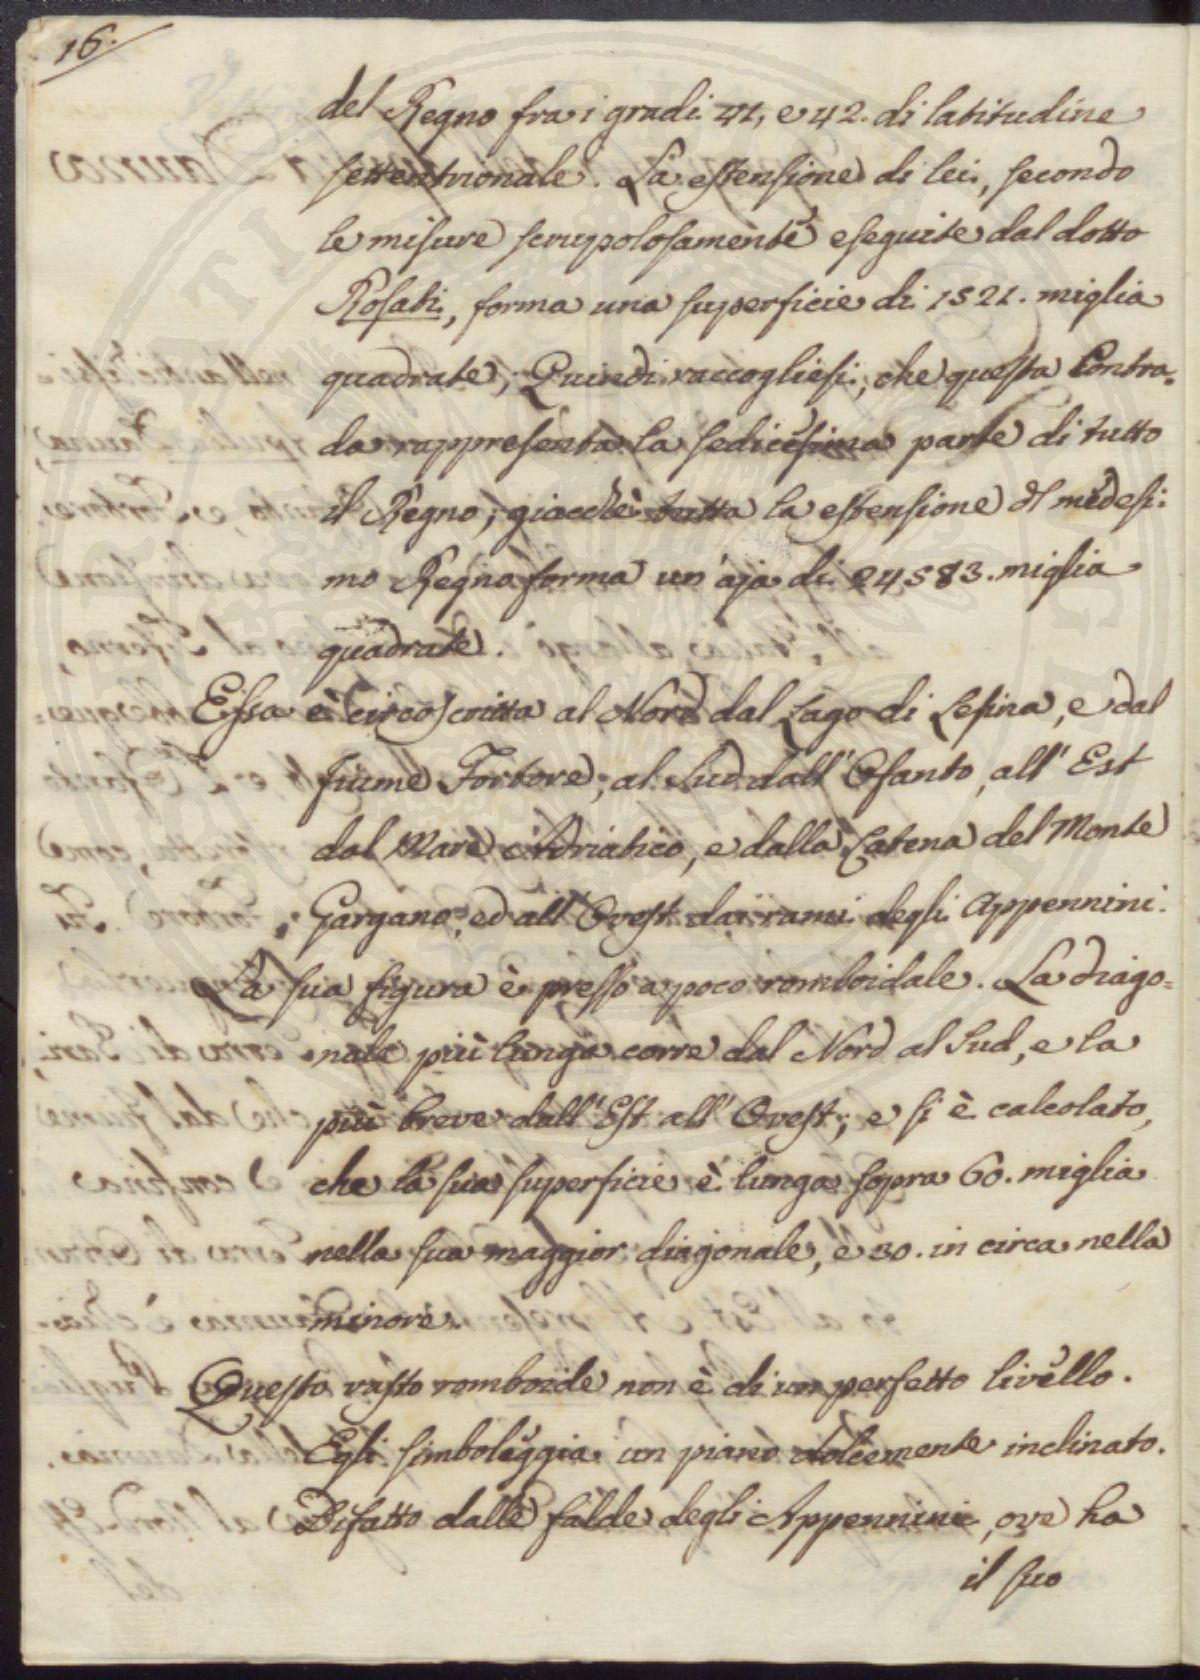 16.
del Regno fra i gradi 41, e 42. di latitudine
settentrionale. La estensione di lei, secondo
le misure scrupolosamente eseguite dal dotto
Rosati, forma una superficie di 1521. miglia
quadrate; Quindi raccogliesi, che questa Contra=
da rappresenta la sedicesima parte di tutto
il Regno; giacchè tutta la estensione dl medesi:
mo Regno forma un'aja di 24583. miglia
quadrate.
Essa è circoscritta al Nord dal Lago di Lesina, e dal
fiume Fortore; al Sud dall'Ofanto, all'Est
dal Mare Adriatico, e dalla Catena del Monte
Gargano; ed all'Ovest dai rami degli Appennini.
La sua figura è presso a poco romboidale. La diago=
nale più lunga corre dal Nord al Sud, e la
più breve dall'Est all'Ovest; e si è calcolato,
che la sua superficie è lunga sopra 60. miglia
nella sua maggior diagonale, e 30. in circa nella
minore.
Questo vasto romboide non è di un perfetto livello.
Egli simboleggia un piano dolcemente inclinato.
Difatto dalle falde degli Appennini, ove ha
il suo